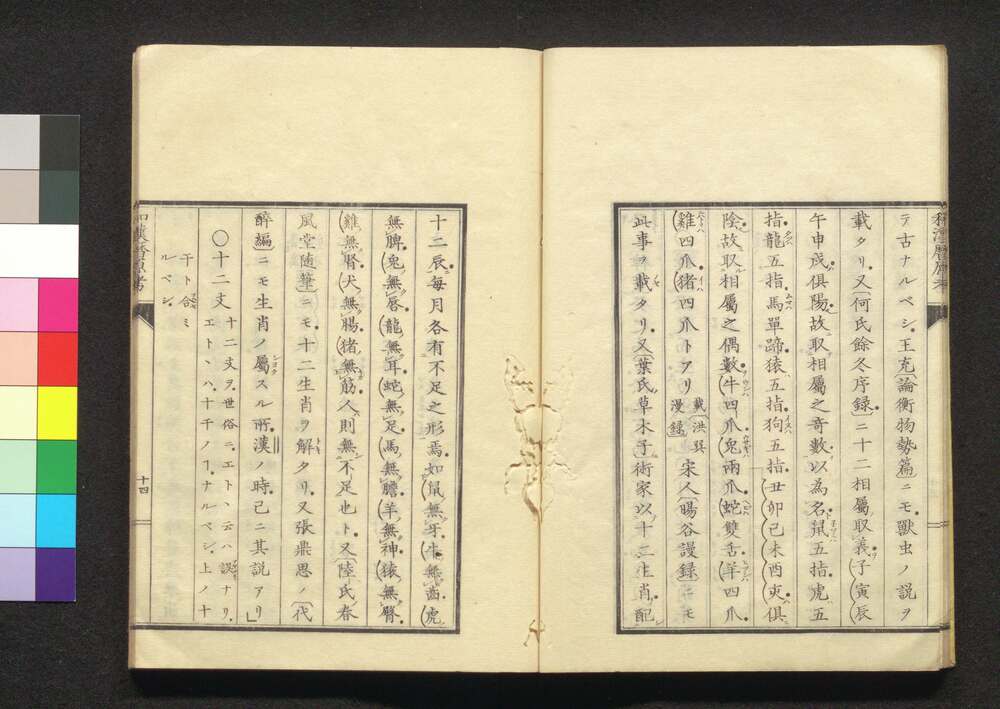 テ古ナルベシ。王充論衡物勢篇ニモ獸虫ノ説ヲ
載タリ。又何氏餘冬序録ニ十二相屬取義子寅辰
午申戌俱陽故取相屬之奇數以為名鼠五指虎五
指龍五指馬單蹄猿五指狗五指丑卯巳未酉亥俱
陰故取相屬之偶數牛四爪兔兩爪蛇雙舌羊四爪
雞四爪猪四爪トアリ載洪巽漫録宋人暘谷謾録ニモ
此事ヲ載タリ。又葉氏草木子術家以十二生肖配
十二辰每月各有不足之形焉如鼠無牙牛無齒虎
無脾兔無唇龍無耳蛇無足馬無膽羊無神猿無腎
雞無腎犬無腸猪無筋人則無不足也ト又陸氏春
風堂随筆ニモ十二生肖ヲ解タリ。又張鼎思ノ代
醉編ニモ生肖ノ屬スル所漢ノ時已ニ其説アリ」
〇十二丈 十二丈ヲ世俗ニ。エトヽ云ハ誤ナリ。
エトヽハ。十干ノヿナルベシ。上ノ十
干ト合ミ
ルベシ。
十四